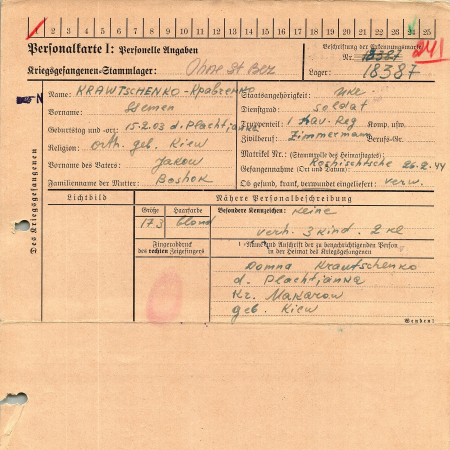 1 2 3 4 5 6 7 8 9 10 11 12 13 14 15 16 17 18 19 20 21 22 23 24 25
Personalkarte I: Personelle Angaben
Kriegsgefangenen-Stammlager: Ohne St Bez
Beschriftung der Erkennungsmarke
Nr. 18387
241
Lager: 18387
Des Kriegsgefangenen
N
Name: KRAWTSCHENKO - Кравченко
Vorname: Stemen
Geburtstag und -ort: 15.2.03 d. Plachtjanka
Religion: orth. geb. Kiew
Vorname des Vaters: Jakow
Familienname der Mutter: Boshok
Staatsangehörigkeit: Ukr.
Dienstgrad: Soldat
Truppenteil: 1 Kav. Reg Komp. usw.
Zivilberuf: Zimmermann Berufs-Gr.
Matrikel Nr. (Stammrolle des Heimatstaates)
Gefangennahme (Ort und Datum): 26.2.44
Ob gesund, krank, verwundet eingeliefert: verw.
Lichtbild
Nähere Personalbeschreibung
Größe
Haarfarbe
Besondere Kennzeichen: Keine
173
blond
verh. 3 Kind. 2 Kl
Fingerabdruck
des rechten Zeigefingers
Name und Anschrift der zu benachrichtigenden Person
in der Heimat des Kriegsgefangenen
Domna Krautschenko
d. Plachtjanka
Kr. Makarow
geb. Kiew
Wenden!